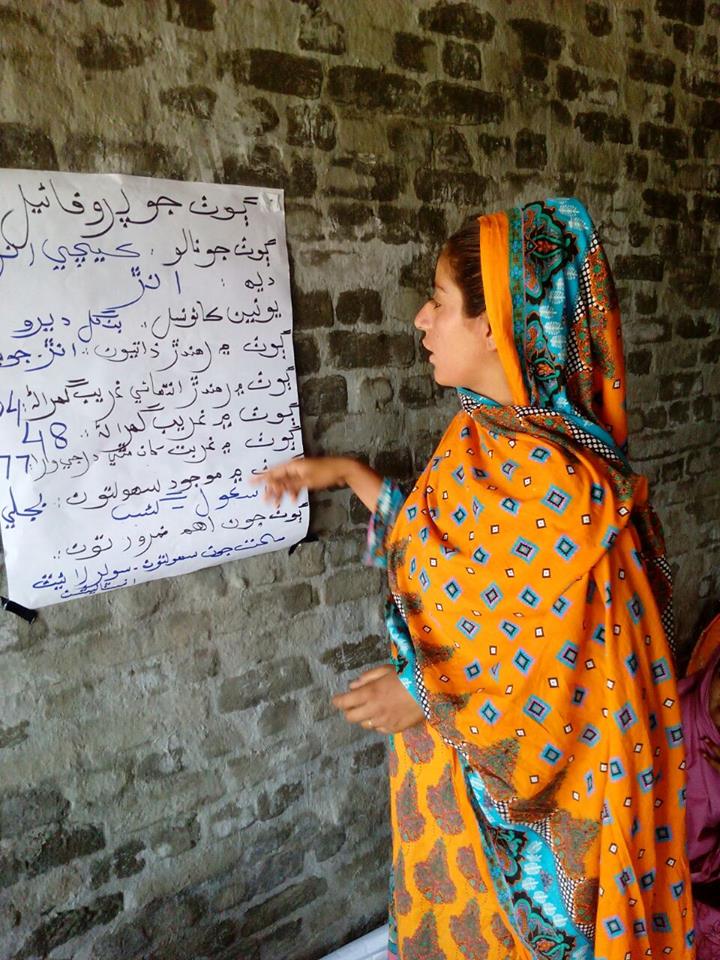 ڳوٺ جو پروفائيل
ڳوٺ جو نالو: ڪيچي
ديهه: انڙ
يونين ڪائونسل: بنگل ديرو
ڳوٺ ۾ رهندڙ ذاتيون: انڙ۔
ڳوٺ ۾ رهندڙ انتهائي غريب گهراڻا:
ڳوٺ ۾ غريب گهراڻا: 48
ڳوٺ ۾ غربت کان مٿي
۾ موجود سهولتون: بجلي
سڪول
ڳوٺ جون اهم ضرورتون:
صحت جون سهولتون۔ سولر